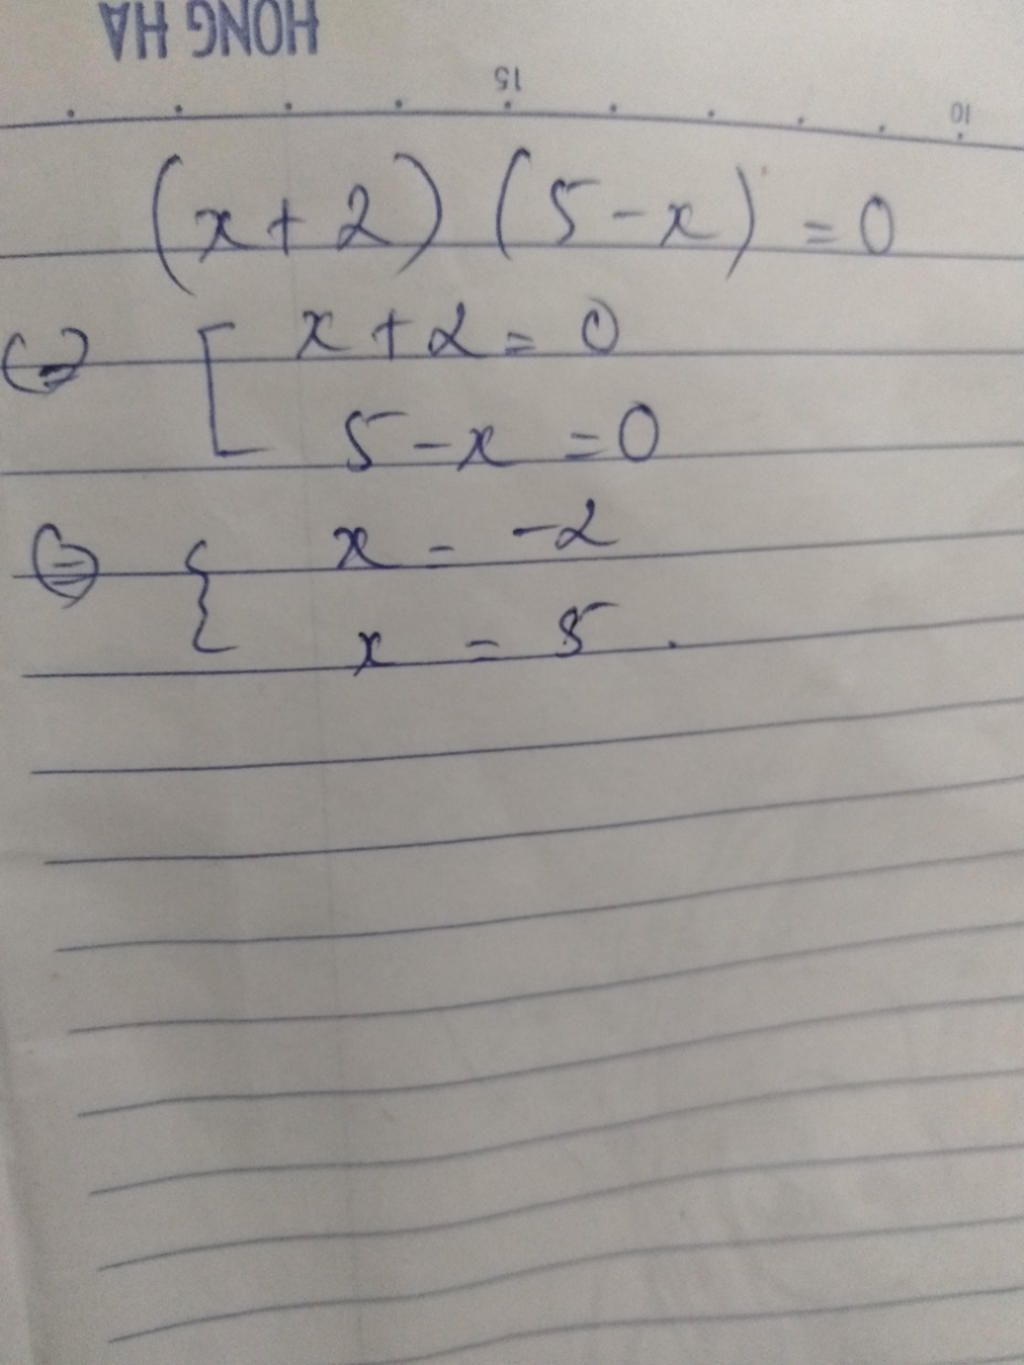 HONG HA
15 10
(x+2) (5-x) = 0
(=) [ x+2 = 0
5-x = 0
(=) { x = -2
x = 5.